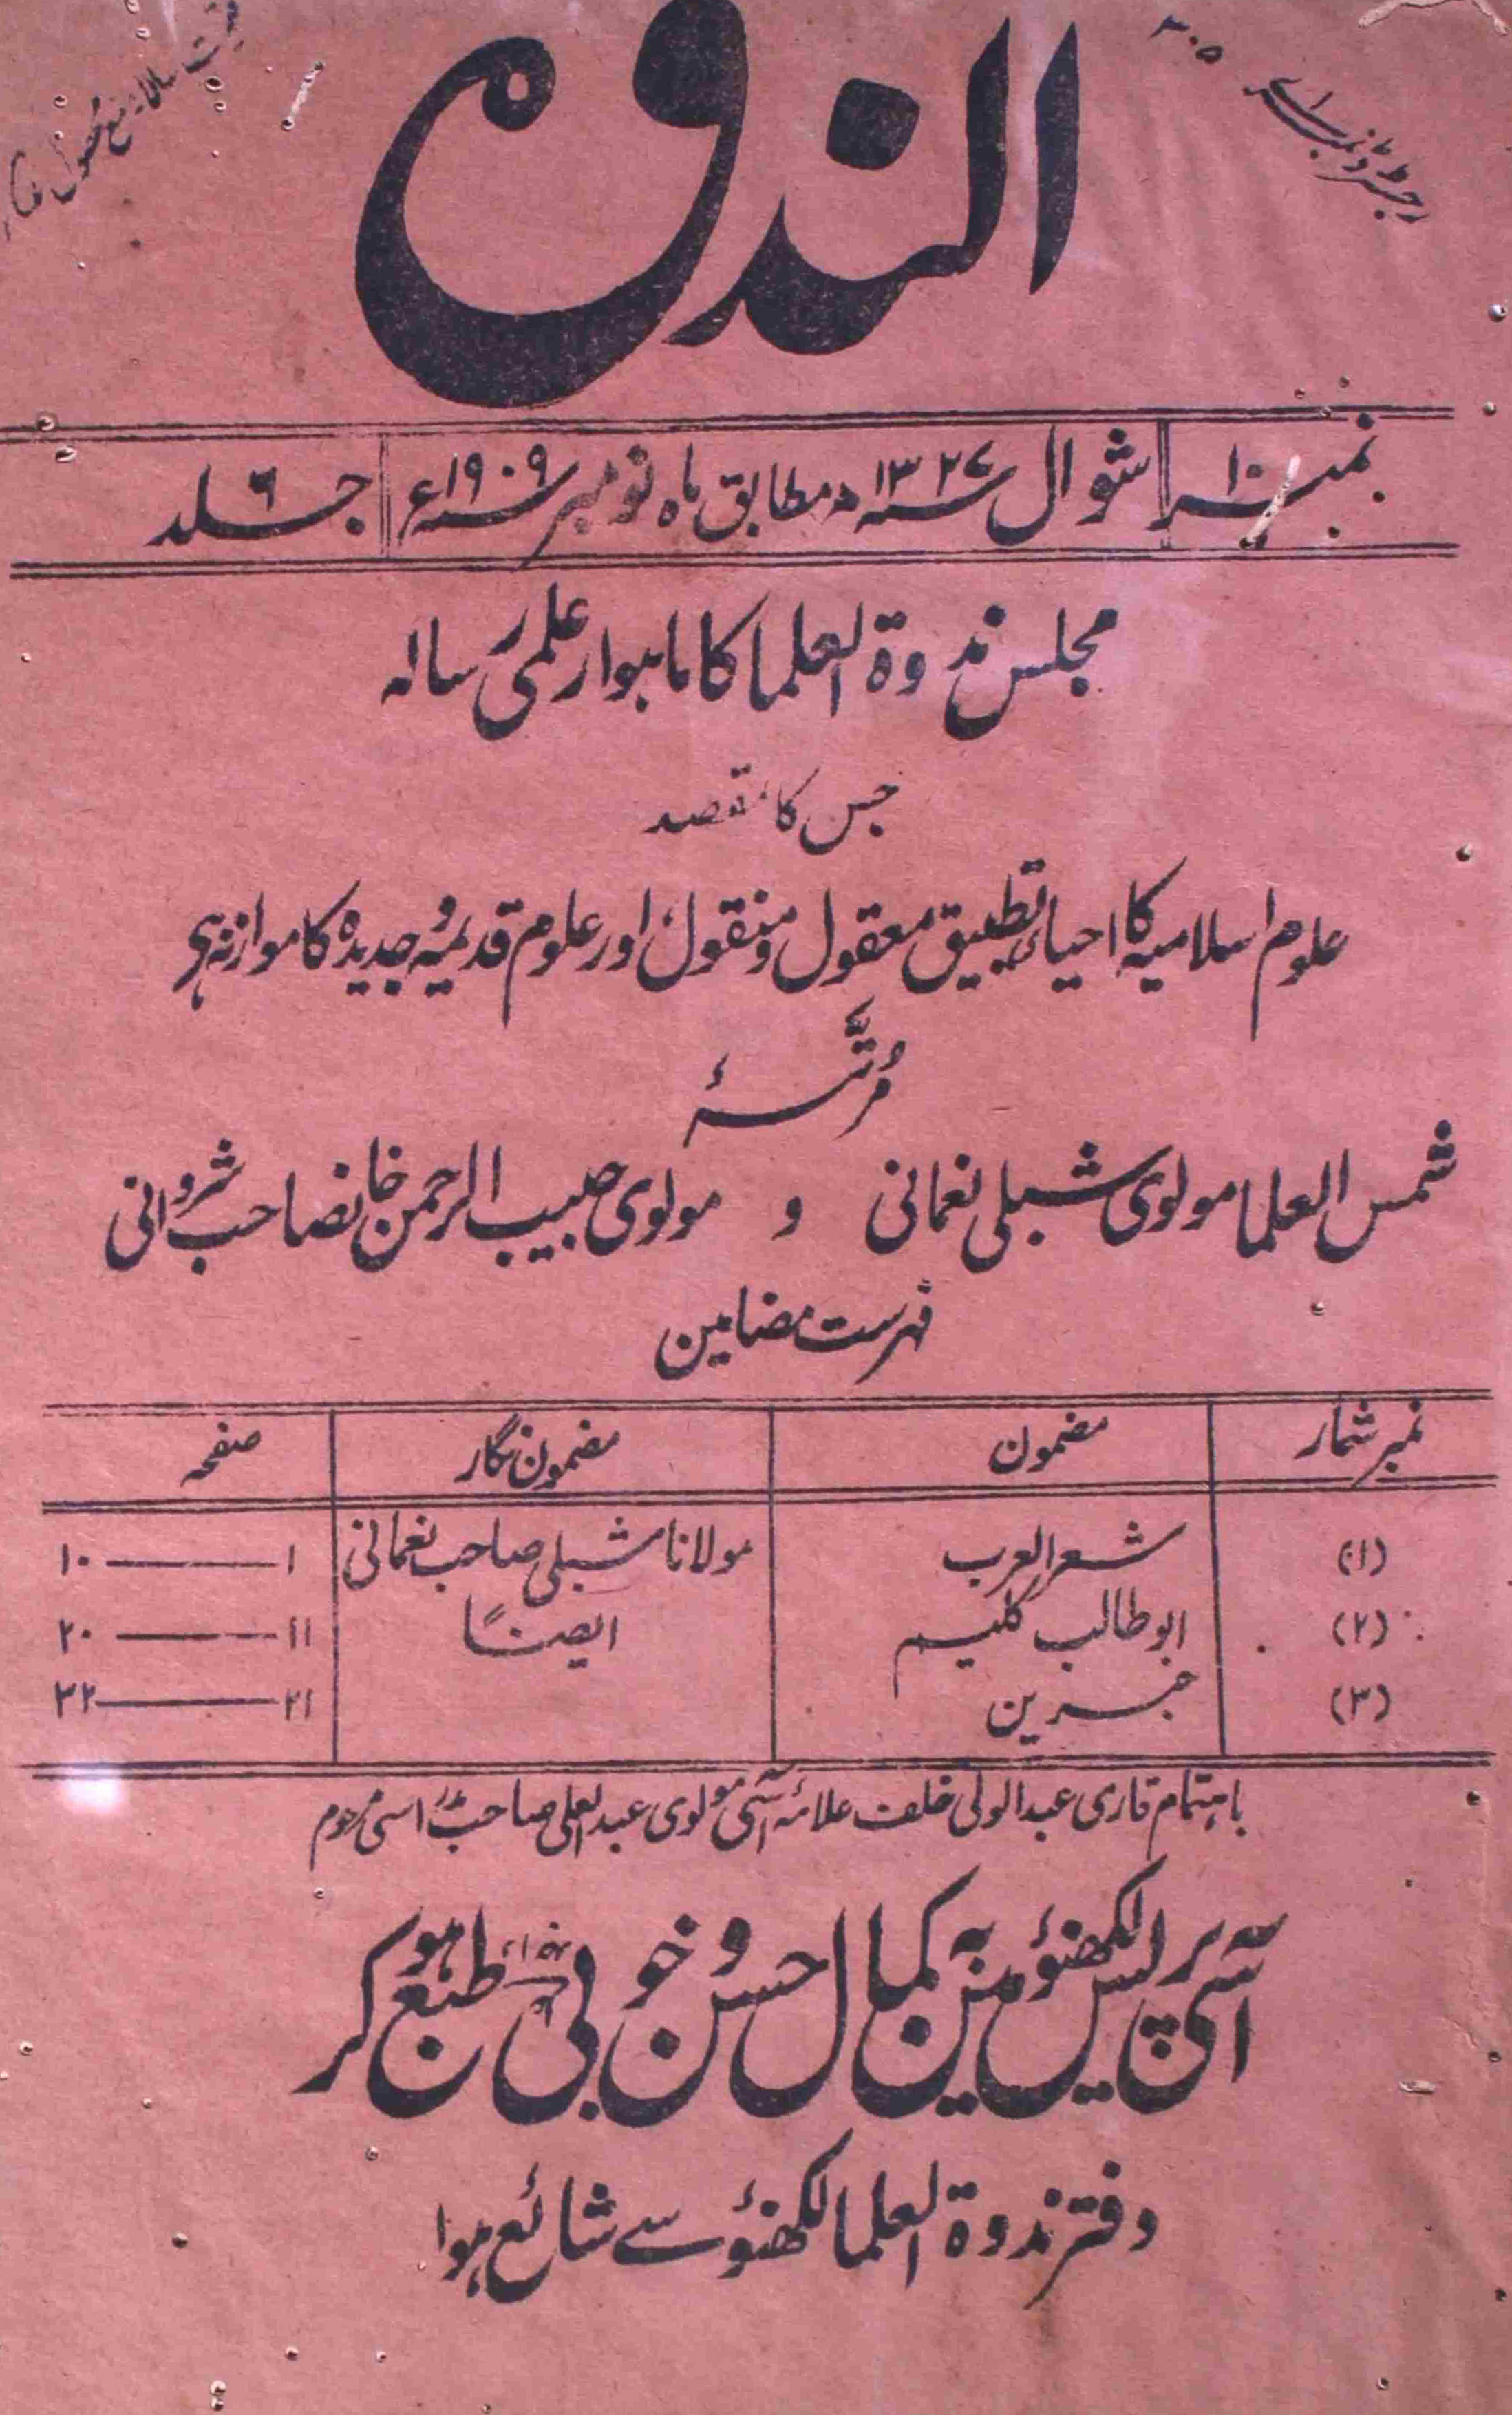 رجسٹرڈ نمبر اے ۳۰۵
قیمت سالانہ مع محصول
الندوہ
نمبر ۱۰ شوال سنہ ۱۳۲۷ھ مطابق ماہ نومبر سنہ ۱۹۰۹ء جلد ۶
مجلس ندوۃ العلما کا ماہوار علمی رسالہ
جس کا مقصد
علوم اسلامیہ کا احیاء تطبیق معقول و منقول، اور علوم قدیمہ و جدیدہ کا موازنہ ہی
مُرتَّبہٗ
شمس العلما مولوی شبلی نعمانی و مولوی حبیب الرحمن خانصاحب شروانی
فہرست مضامین
نمبر شمار مضمون مضمون نگار صفحہ
(۱) شعر العرب مولانا شبلی صاحب نعمانی ۱ — ۱۰
(۲) ابو طالب کلیم ایضاً ۱۱ — ۲۰
(۳) خبرین ۲۱ — ۳۲
باہتمام قاری عبدالولی خلف علامہ آسی مولوی عبدالعلی صاحب مدراسی مرحوم
آسی پریس لکھنؤ مین بہ کمال حسن و خوبی طبع ہو کر
دفتر ندوۃ العلما لکھنؤ سے شائع ہوا